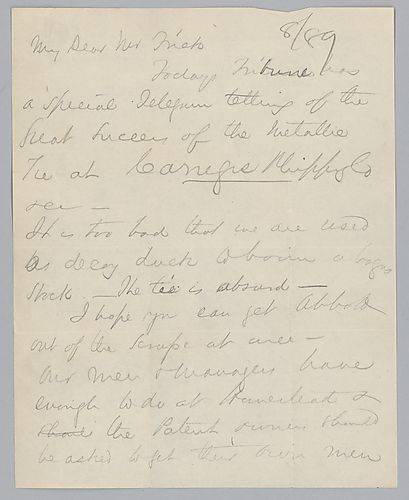 8/89
My Dear Mr Frick
Todays Tribune has
a special Telegram telling of the
Great Success of the Metallic
Tie at Carnegie Phipps & Co
It is too bad that we are used
as decoy duck a bogus
stock — The tie is absurd —
I hope you can get Abbott
out of the scrape at once —
Our men & Managers have
enough to do at Homestead &
the Patent owners should
be asked to get their own men